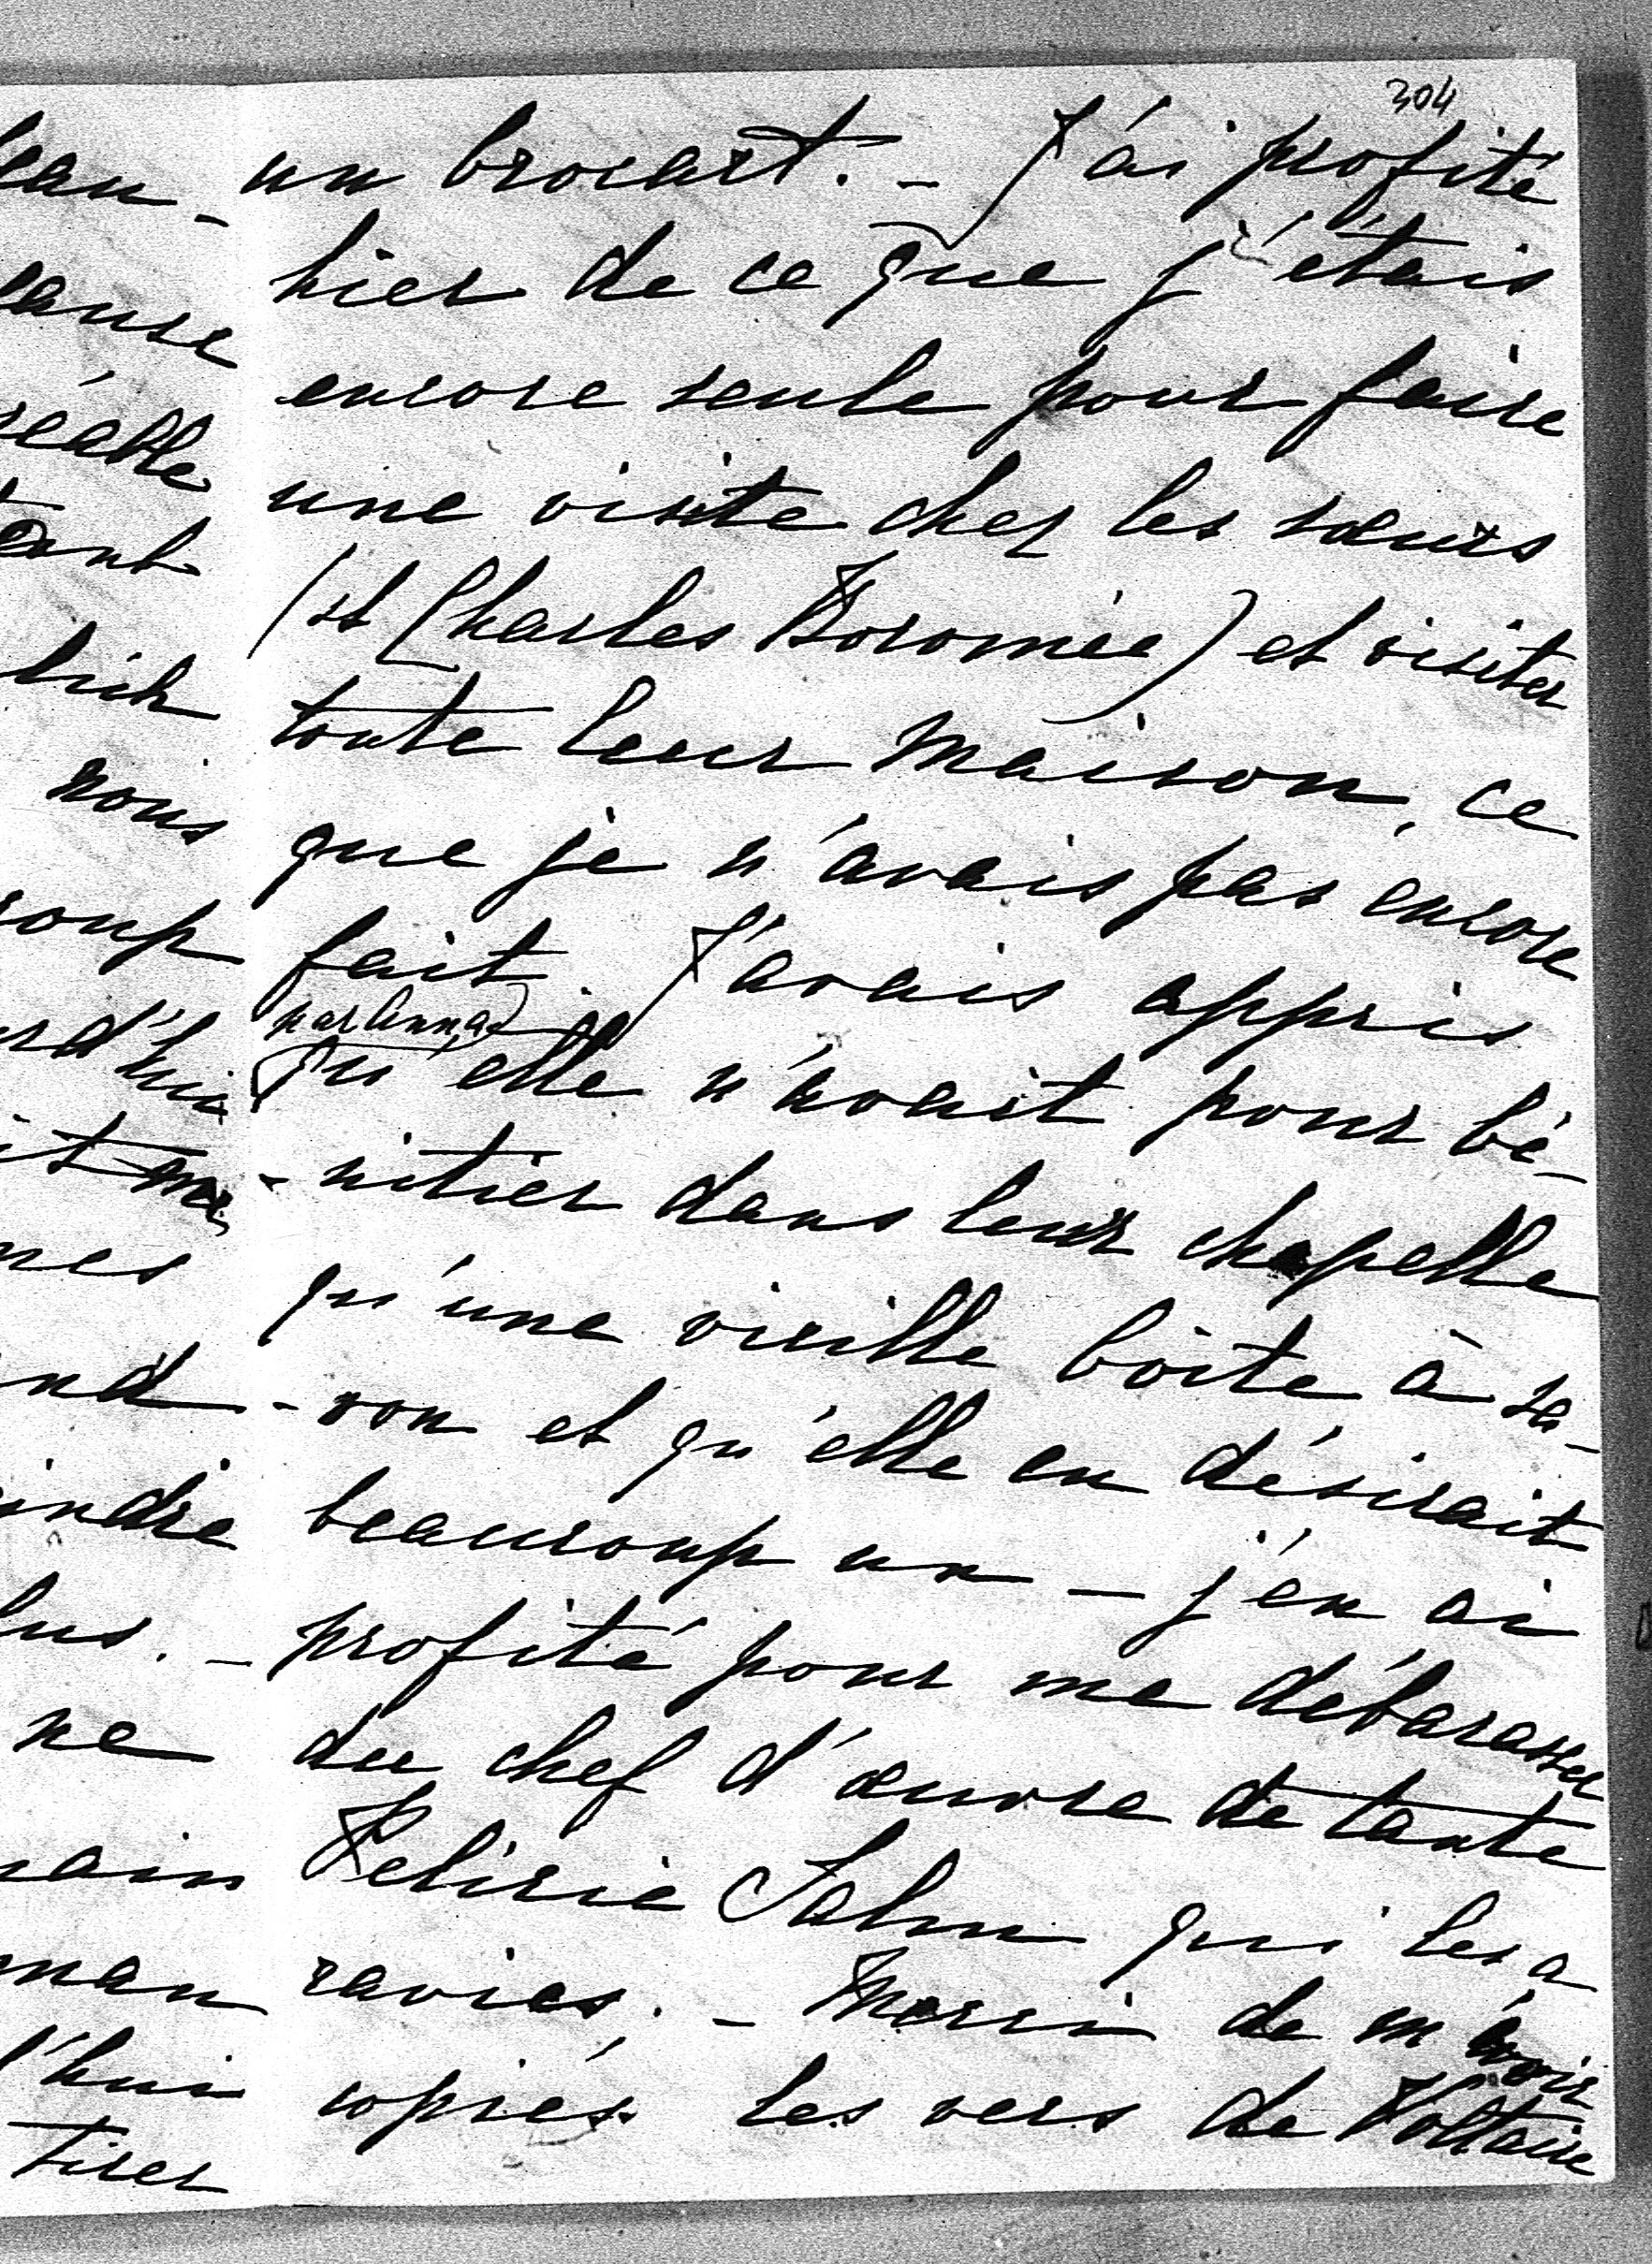 304
un brocart. - J'ai profité
hier de ce que j'étais
encore seule pour faire
une visite chez les sœurs
(st Charles Boromée) et visiter
toute leur maison, ce
que je n'avais pas encore
fait. J'avais appris
par Anna
qu'elle n'avait pour bé-
-nitier dans leur chapelle
qu'une vieille boîte à sa-
-von et qu'elle en désirait
beaucoup un - j'en ai
profité pour me débarasser
du chef d'œuvre de tante
Felicie Salm qui les a
ravies. - Merci de m'avoir
copiés les vers de Voltaire
ause
réable
tant
lich
nous
coup
rd'hui
mes
indre
lus. -
ne
main
man
d'hui
tirer